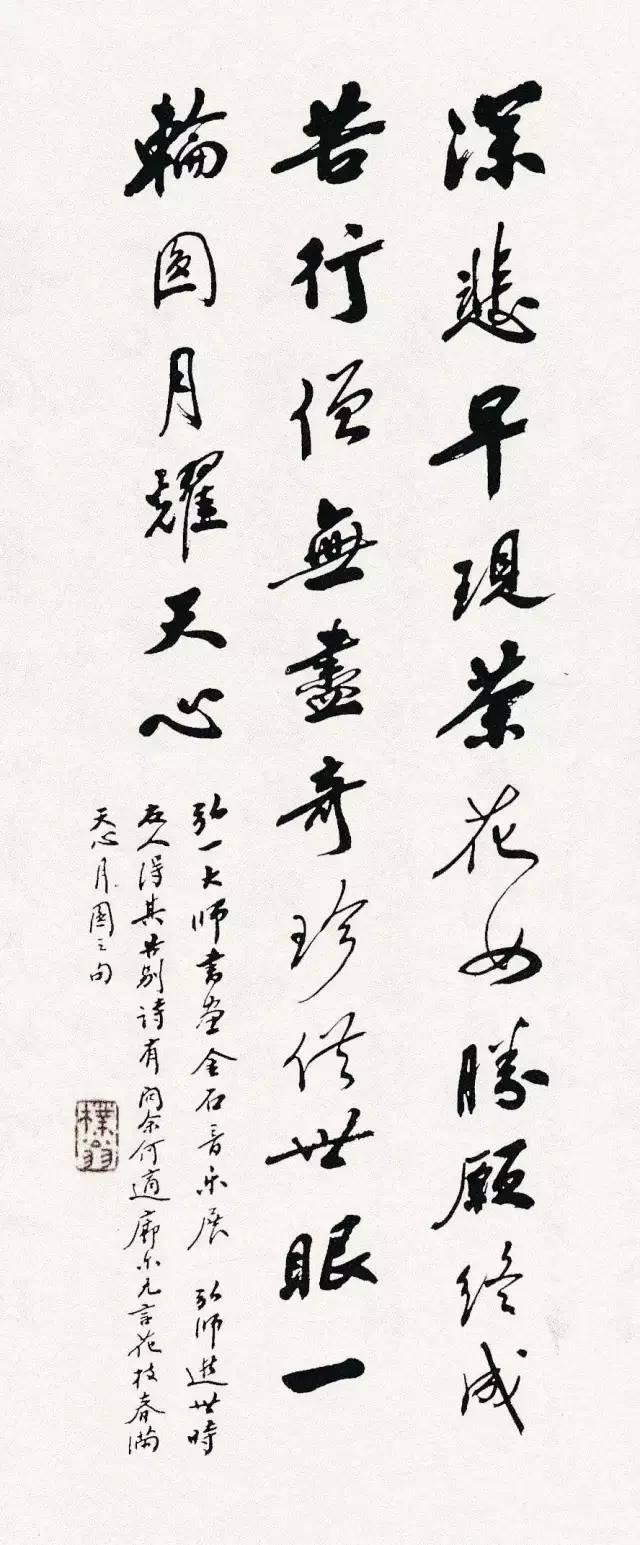 深悲早現茶花女勝願終成
苦行僧無盡奇珍供世眼一
輪圓月耀天心
弘一大師書畫金石音乐展 弘师逝世時
友人得其告别詩有问余何適廓尔亡言花枝春滿
天心月圓之句
樸翁